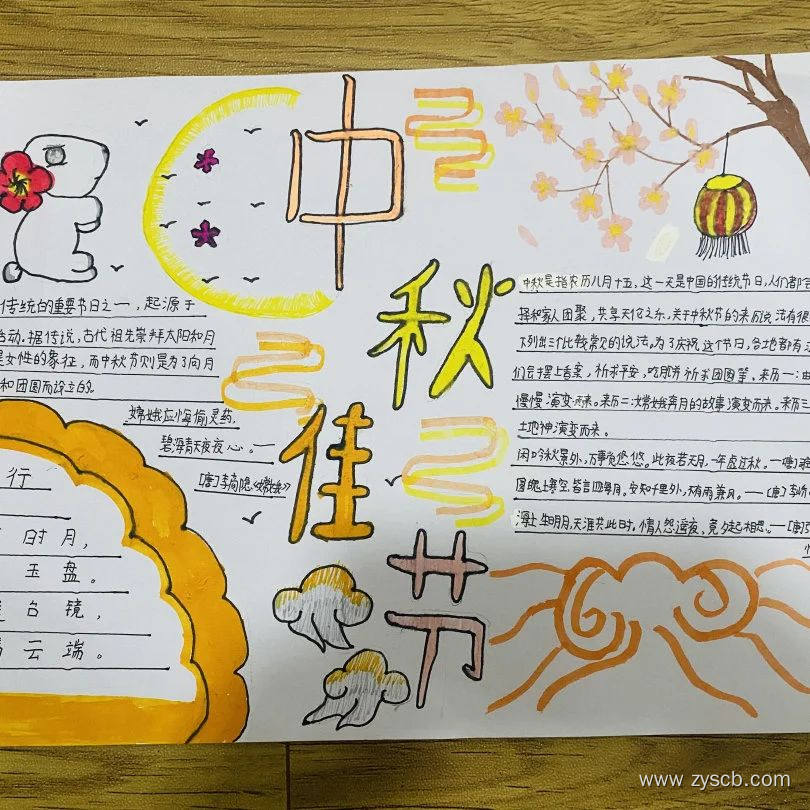 中秋佳节
传统的重要节日之一，起源于
活动.据传说，古代祖先崇拜太阳和月
是女性的象征，而中秋节则是为了向月
和团圆而设立的
嫦娥应悔偷灵药，
碧海青天夜夜心。——
[唐]李商隐《嫦娥》
行
时月，
玉盘。
台镜，
云端。
中秋是指农历八月十五，这一天是中国的传统节日，人们都会
择和家人团聚，共享天伦之乐，关于中秋节的来历说法有很
下列出三个比较常见的说法，为了庆祝这个节日，各地都有
们会摆上香案，祈求平安，吃月饼祈求团圆等，来历一：由
慢慢演变而来。来历二：嫦娥奔月的故事演变而来。来历三
土地神演变而来。
闲吟秋景外，万事觉悠悠。此夜若无月，一年虚过秋。——[唐]
圆魄上寒空，皆言四海同。安知千里外，不有雨兼风。——[唐]李
海上生明月，天涯共此时。情人怨遥夜，竟夕起相思。——[唐]
www.zyscb.com